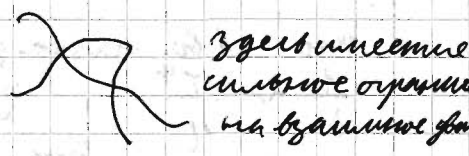 Здесь имеется
сильное ограни
на взаимное